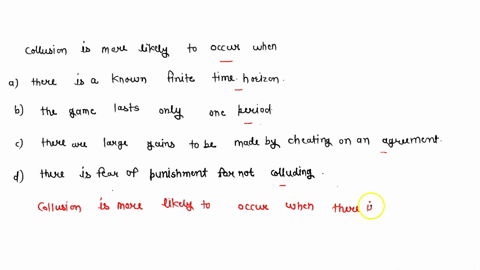 Collusion is more likely to occur when
a) there is a known finite time horizon.
b) the game lasts only one period
c) there are large gains to be made by cheating on an agreement.
d) there is fear of punishment for not colluding.
Collusion is more likely to occur when there is